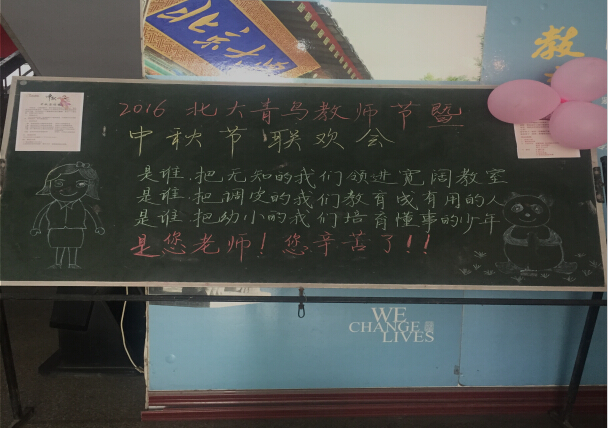 北京大
教
2016 北大青鸟教师节暨
中秋节 联欢会
是谁.把无知的我们领进宽阔教室
是谁.把调皮的我们教育成有用的人
是谁.把幼小的我们培育懂事的少年
是您老师!您辛苦了!!!
WE
CHANGE
LIVES